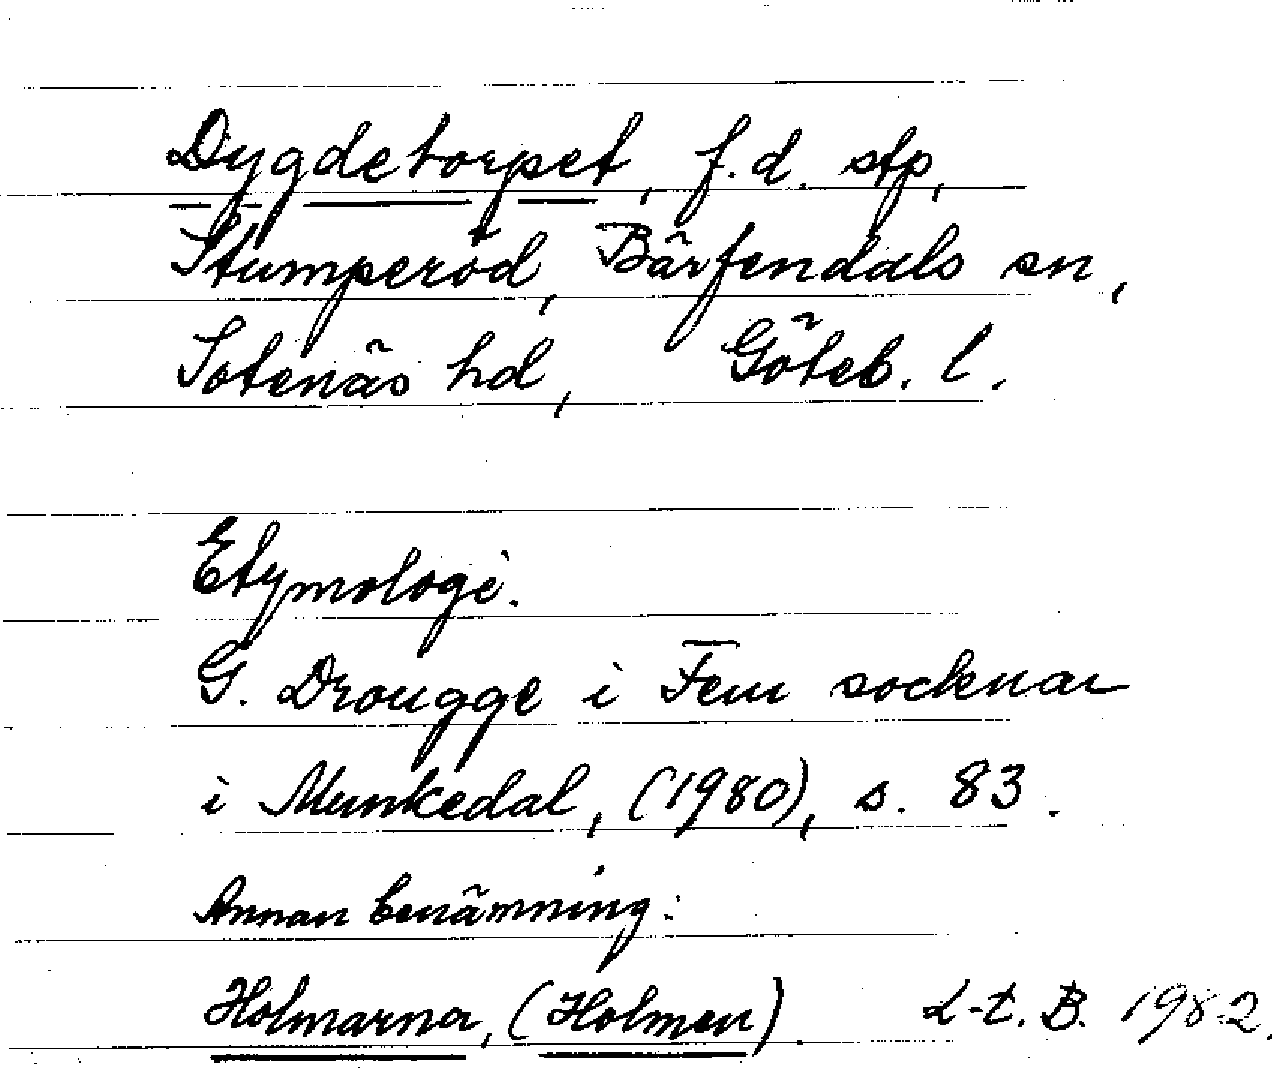 Dygdetorpet, f.d. stp,
Stumperöd, Bärfendals sn,
Sotenäs hd, Göteb. l.
Etymologi.
G. Drougge i Fem socknar
i Munkedal, (1980), s. 83.
Annan benämning:
Holmarna, (Holmen). L-t. B. 1982.